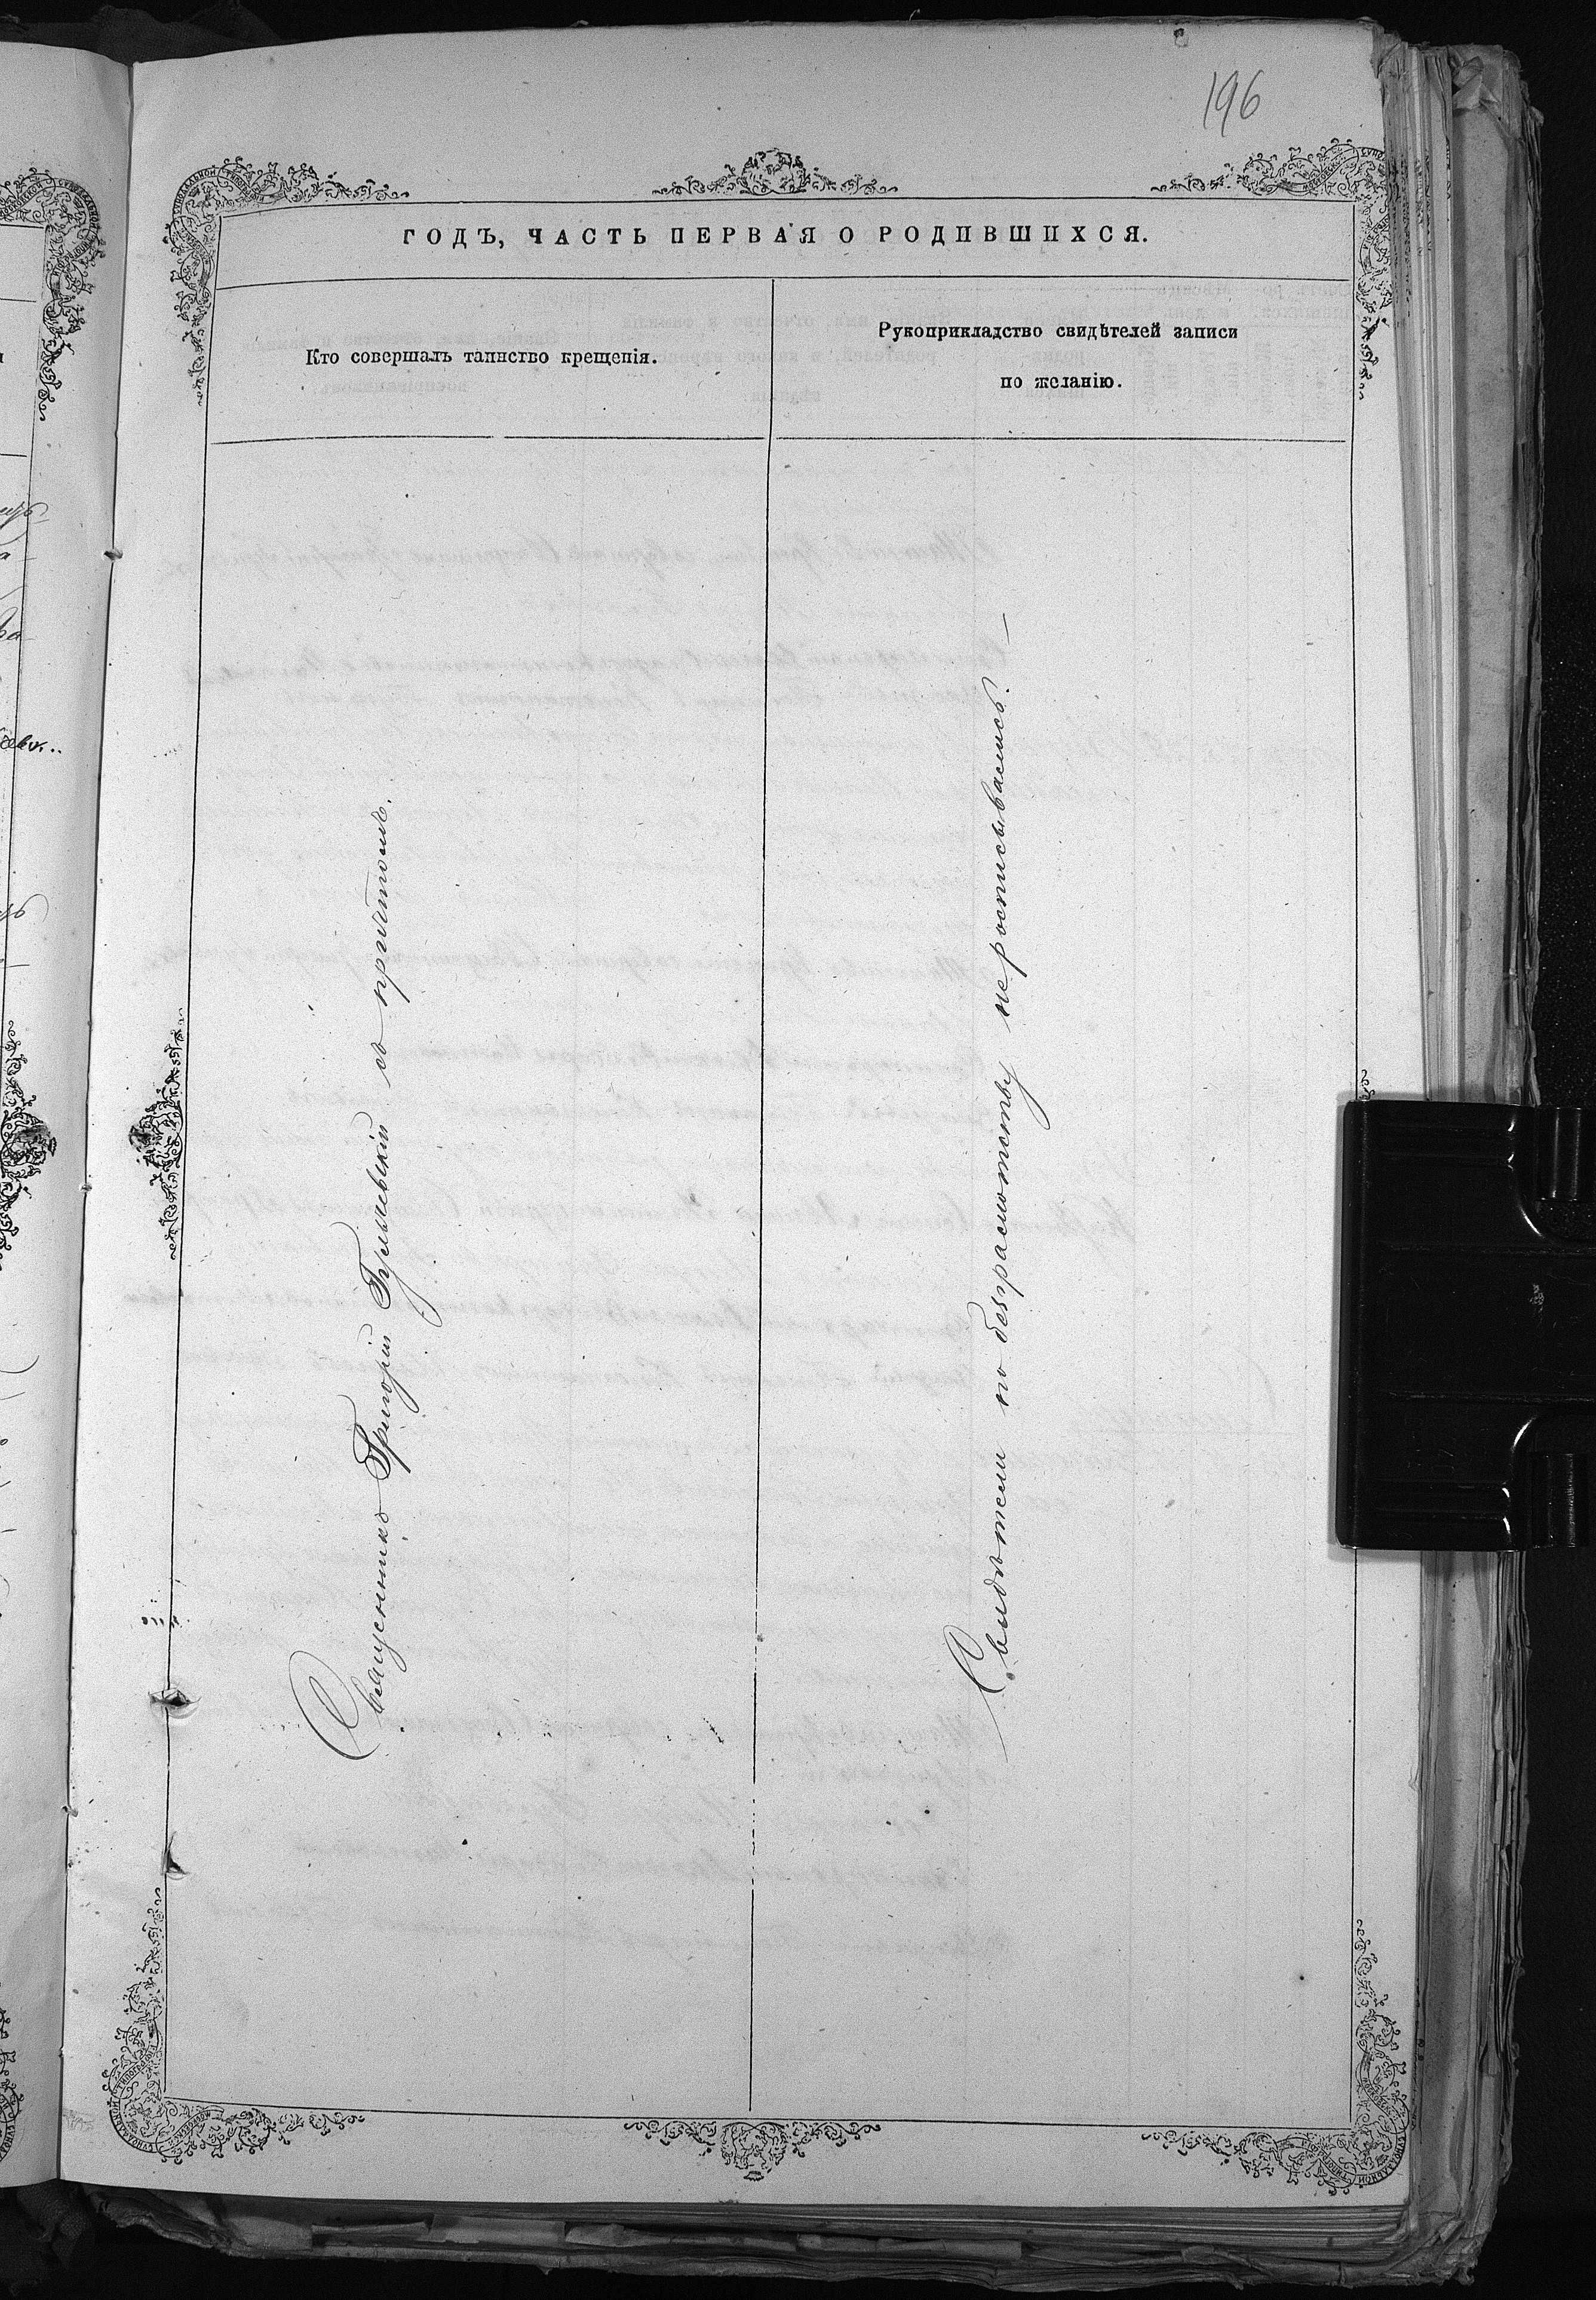 196
ГОДЪ, ЧАСТЬ ПЕРВАЯ О РОДИВШИХСЯ.
Кто совершалъ таинство крещенія.
Рукоприкладство свидѣтелей записи
по желанію.
Священникъ Григорій съ причтомъ.
Свидѣтели по безграмотству не росписывались. —